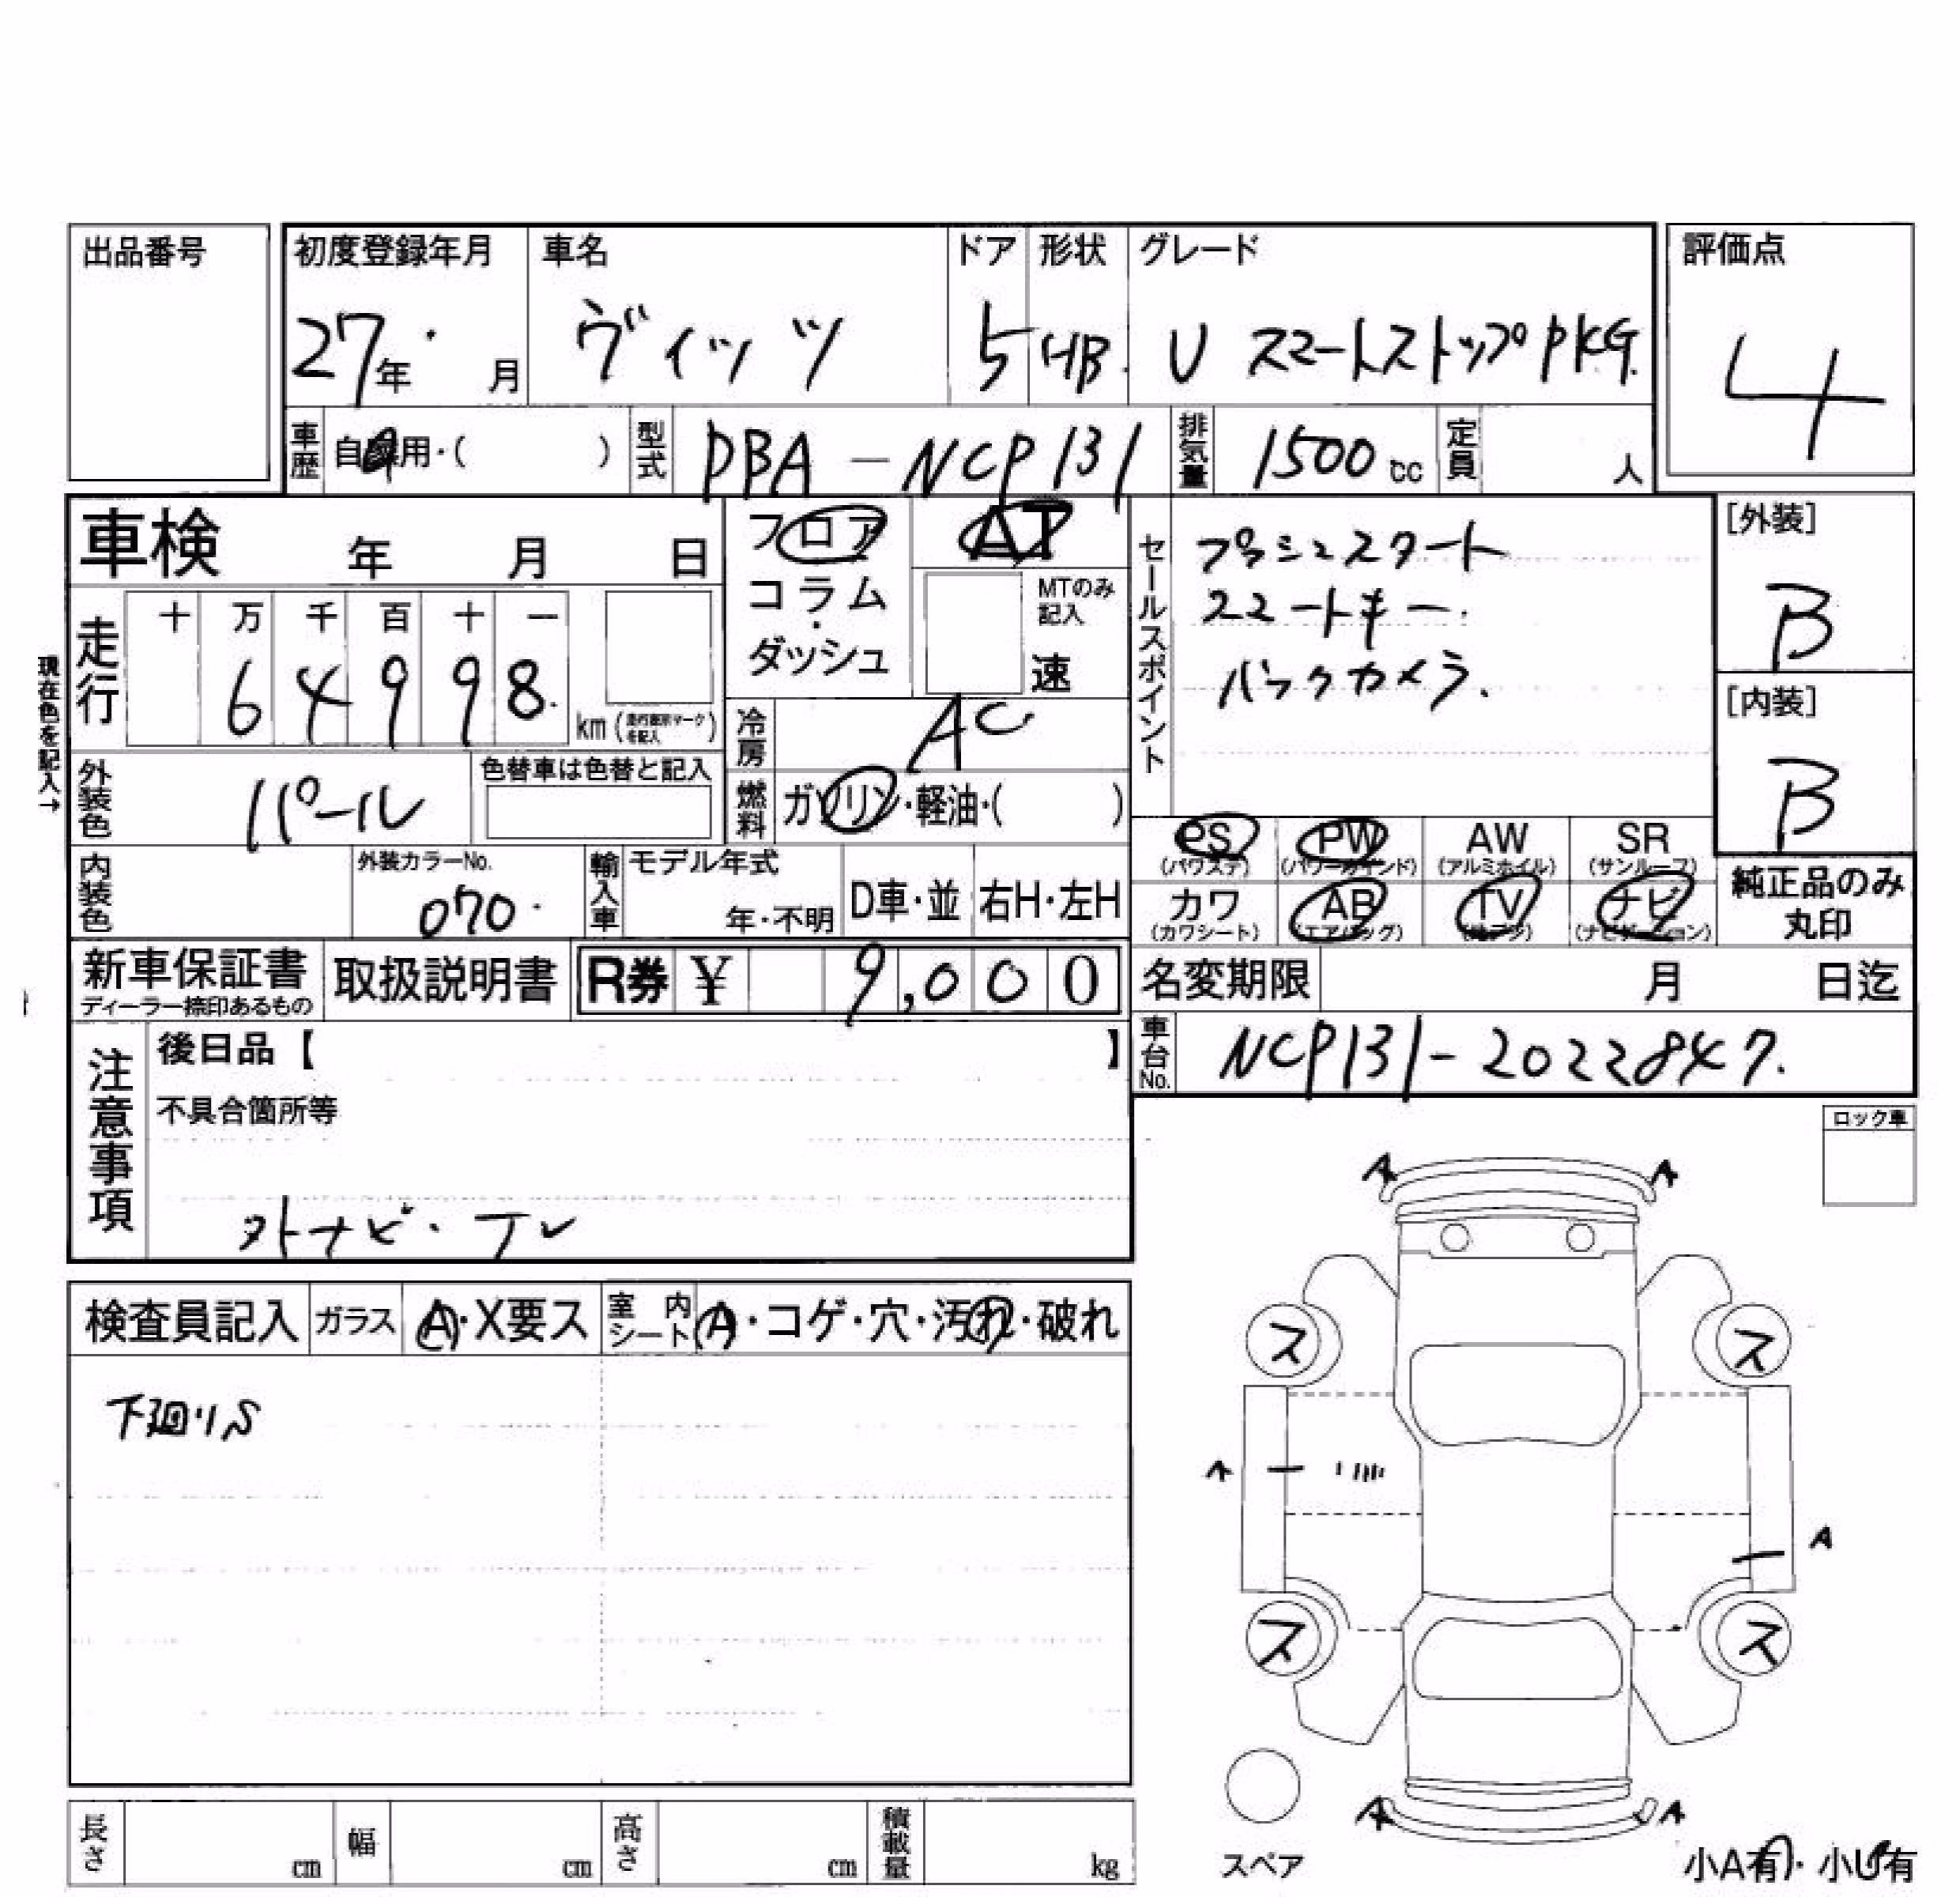 出品番号
初度登録年月 車名 ドア 形状 グレード 評価点
27年・ 月 ヴィッツ 5 HB. U スマートストップPKG. 4
車歴 自家用・( ) 型式 DBA-NCP131 排気量 1500cc 定員 人
車検 年 月 日
フロア コラム・ダッシュ
AT
MTのみ記入
速
走行
十 万 千 百 十 一
6 4 9 9 8.
km (走行表示マークを記入)
現在色を記入→
冷房 AC
外装色 パール
色替車は色替と記入
燃料 ガソリン・軽油・( )
セールスポイント
プッシュスタート
スマートキー.
バックカメラ.
[外装]
B
[内装]
B
PS (パワステ) PW (パワーウインド) AW (アルミホイル) SR (サンルーフ)
カワ (カワシート) AB (エアバッグ) TV (地デジ) ナビ (ナビゲーション)
純正品のみ丸印
内装色 外装カラーNo. 070・
輸入車 モデル年式 年・不明 D車・並 右H・左H
新車保証書 ディーラー捺印あるもの 取扱説明書 R券 ¥ 9,000
名変期限 月 日迄
車台No. NCP131-2022847.
注意事項
後日品【 】
不具合箇所等
外ナビ・TV
ロック車
検査員記入 ガラス A・X要ス 室内シート A・コゲ・穴・汚れ・破れ
下廻りS
A A
ス ス
A A
ス ス
A A
スペア
小A有・小U有
長さ cm 幅 cm 高さ cm 積載量 kg